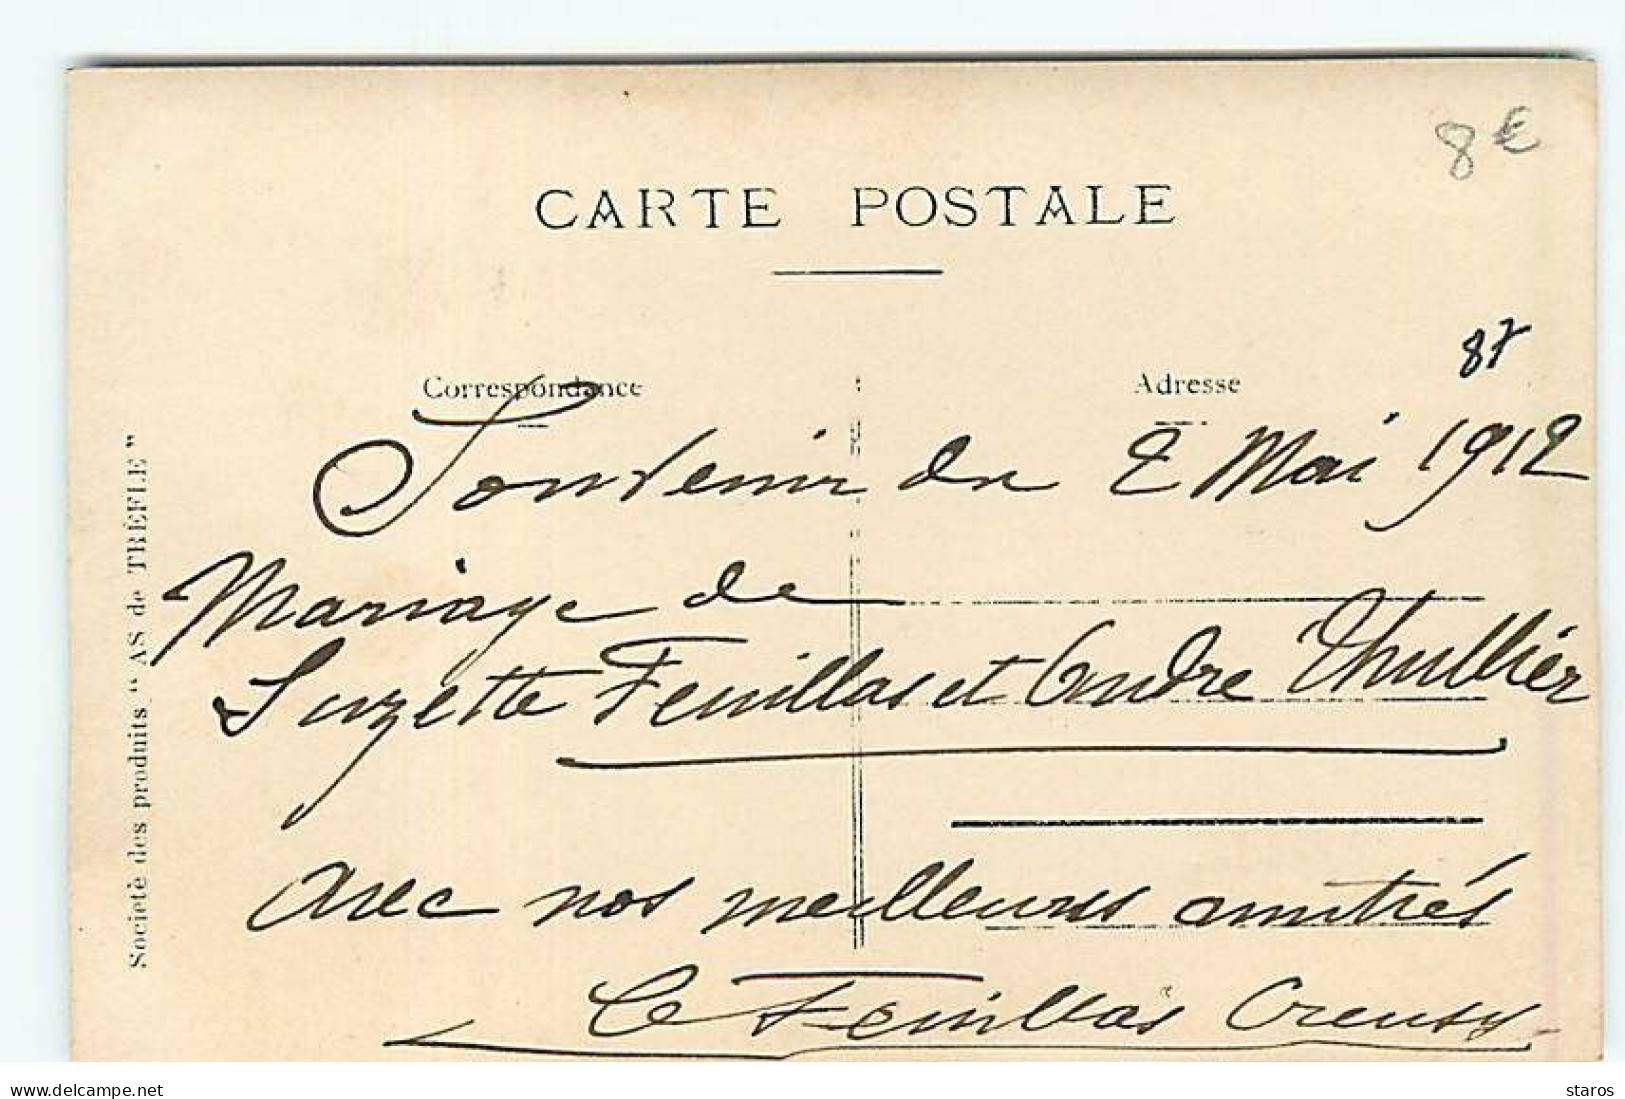 8€
CARTE POSTALE
87
Correspondance
Adresse
Souvenir du 2 Mai 1912
Mariage de
Suzette Feuillas et Andre Thullier
avec nos meilleures amitiés
C Feuillas Creusy
Societé des produits "AS de TRÈFLE"
delcampe.net
staros